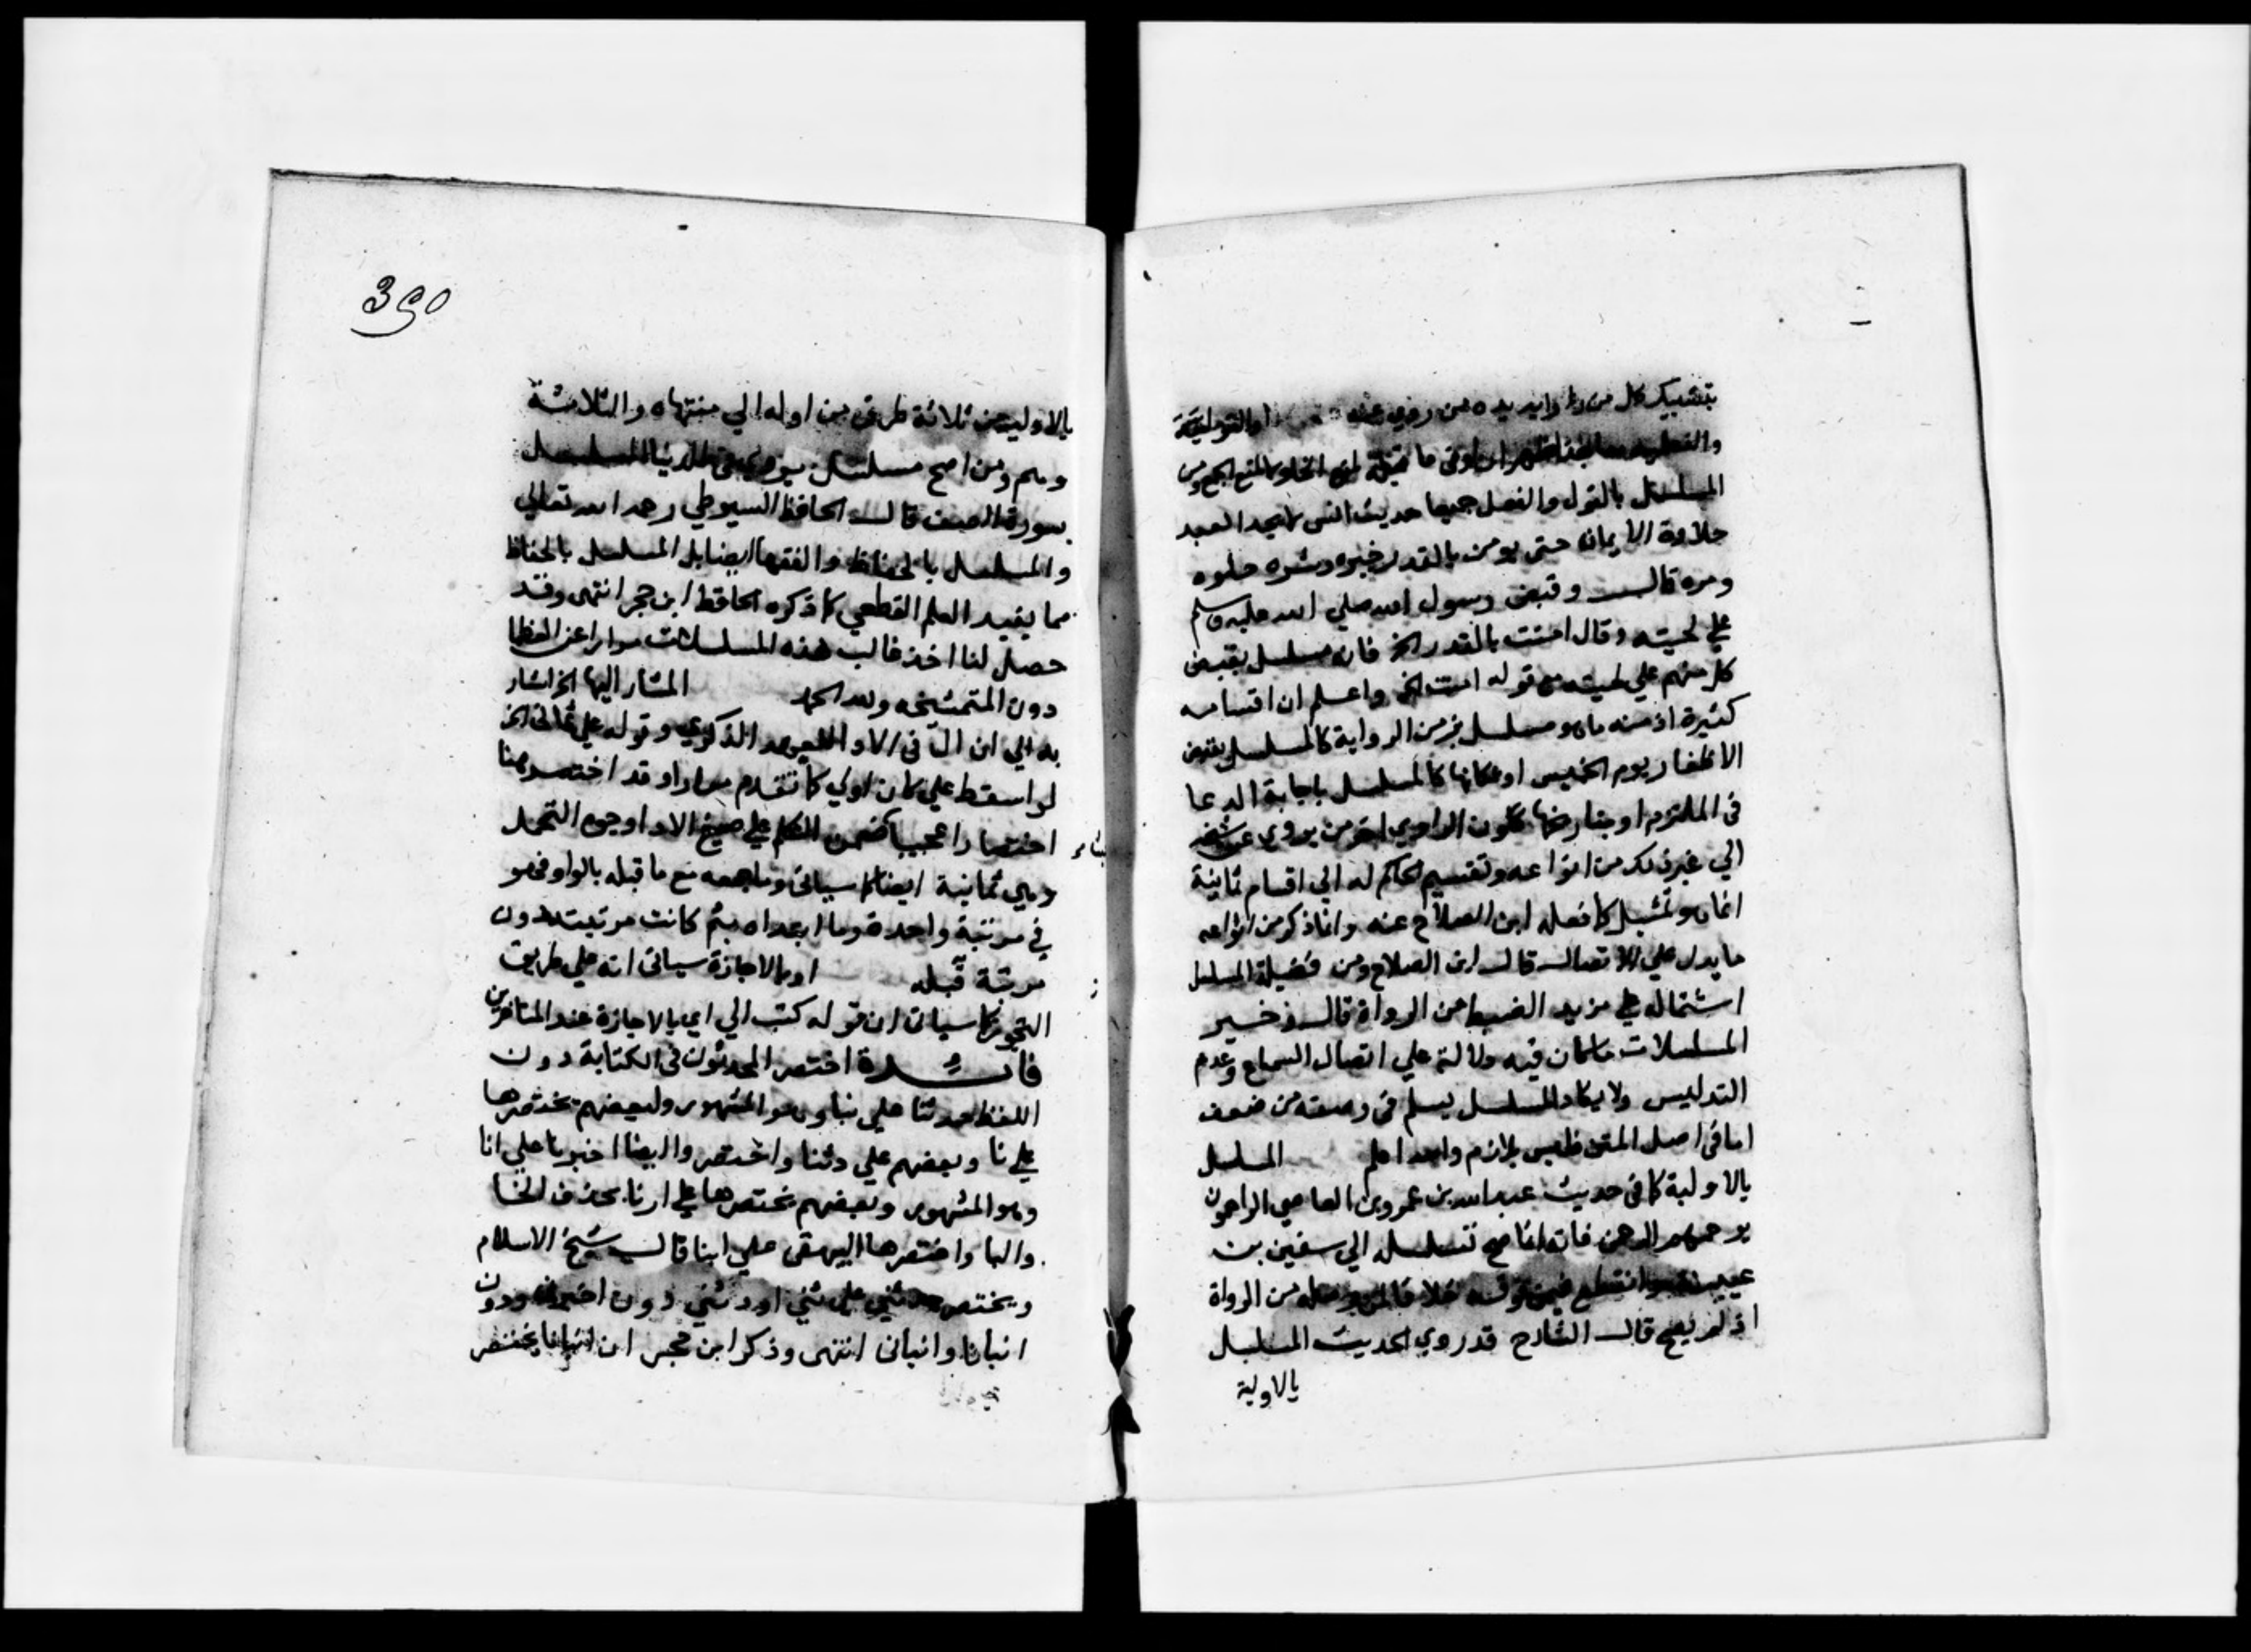 بتشبيك كل من رواته يده من روي عنه او القولية
والفعلية معا
المسلسل بالقول والفعل جميعا حديث انس لا يجد العبد
حلاوة الايمان حتى يومن بالقدر خيره وشره حلوه
ومره قالــ وقبض رسول الله صلي الله عليه وسلم
علي لحيته وقال امنت بالقدر الخ فانه مسلسل بقبض
كل منهم علي لحيته مع قوله امنت الخ واعلم ان اقسامه
كثيرة اذ منه ماهو مسلسل بزمن الرواية كالمسلسل بقص
الاظفار يوم الخميس او مكانها كالمسلسل باجابة الدعا
في الملتزم او بتاريخها ككون الراوي اخر من يروي عن شيخه
الي غير ذلك من انواعه وتقسيم الحاكم له الي اقسام ثمانية
انما هو تمثيل كما فعله ابن الصلاح عنه وانما ذكر من انواعه
ما يدل علي الاتصال قال ابن الصلاح ومن فضيلة المسلسل
اشتماله علي مزيد الضبط من الرواة قال وخير
المسلسلات ماكان فيه دلالة علي اتصال السماع وعدم
التدليس ولا يكاد المسلسل يسلم في وصفه من ضعف
اما في اصل المتن فليس بلازم والله اعلم المسلسل
بالاولية كما في حديث عبدالله بن عمرو بن العاصي الراحمون
يرحمهم الرحمن فانه انما صح تسلسله الي سفين بن
عيينة وانقطع فيمن فوقه خلافا لمن وصله من الرواة
اذ لم يصح قالــ الشارح قد روي الحديث المسلسل
بالاولية
390
بالاولية من ثلاثة طرق من اوله الي منتهاه والثلاثة
وهم ومن اصح مسلسل يروي في الدنيا المسلسل
بسورة الصف قالــ الحافظ السيوطي رحمه الله تعالي
والمسلسل بالحفاظ والفقها ايضا بل المسلسل بالحفاظ
مما يفيد العلم القطعي كما ذكره الحافظ ابن حجر انتهى وقد
حصل لنا اخذ غالب هذه المسلسلات مرارا عن العظما
دون المتمشيخه ولله الحمد المشار اليها الخ اشار
به الي ان ال في الادا للعهد الذكري وقوله علي ثمان الخ
لو اسقط علي كان اولي كما تقدم مرارا وقد اختصر هنا
اختصارا عجيبا فضمن الكلام علي صيغ الادا وجوه التحمل
وهي ثمانية ايضا كما سياتي وما جمعه مع ما قبله بالواو فهو
في مرتبة واحدة وما ابعداه بثم كانت مرتبته دون
مرتبة قبله او بالاجازة سياتي انه علي طريق
التجوز كما سياتي ان قوله كتب الي اي بالاجازة عند المتاخرين
فائدة اختصر المحدثون في الكتابة دون
اللفظ حدثنا علي ثنا وهو المشهور وبعضهم يختصرها
علي نا وبعضهم علي دثنا واختصروا ايضا اخبرنا علي انا
وهو المشهور وبعضهم يختصرها علي ارنا بحذف الخا
والبا واختصرها البيهقي علي ابنا قالــ شيخ الاسلام
ويختصر حدثني علي ثني او دثني دون اخبرني ودون
انبانا وانباني انتهى وذكر ابن حجر ان انبانا يختصر